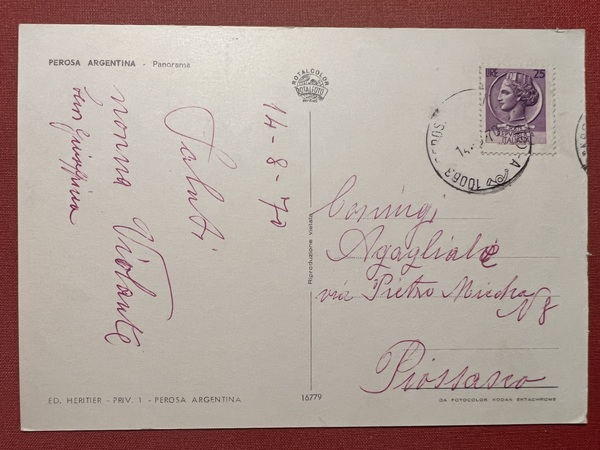 PEROSA ARGENTINA - Panorama
ROTALCOLOR
ROTALFOTO
14-8-70
Saluti
nonna Violante
Giuseppina
LIRE 25
10063 PEROS
14.
Coniugi
Agagliate
via Pietro Micha
N 8
Piossasco
Riproduzione vietata
ED. HERITIER - PRIV. 1 - PEROSA ARGENTINA
16779
DA FOTOCOLOR KODAK EKTACHROME